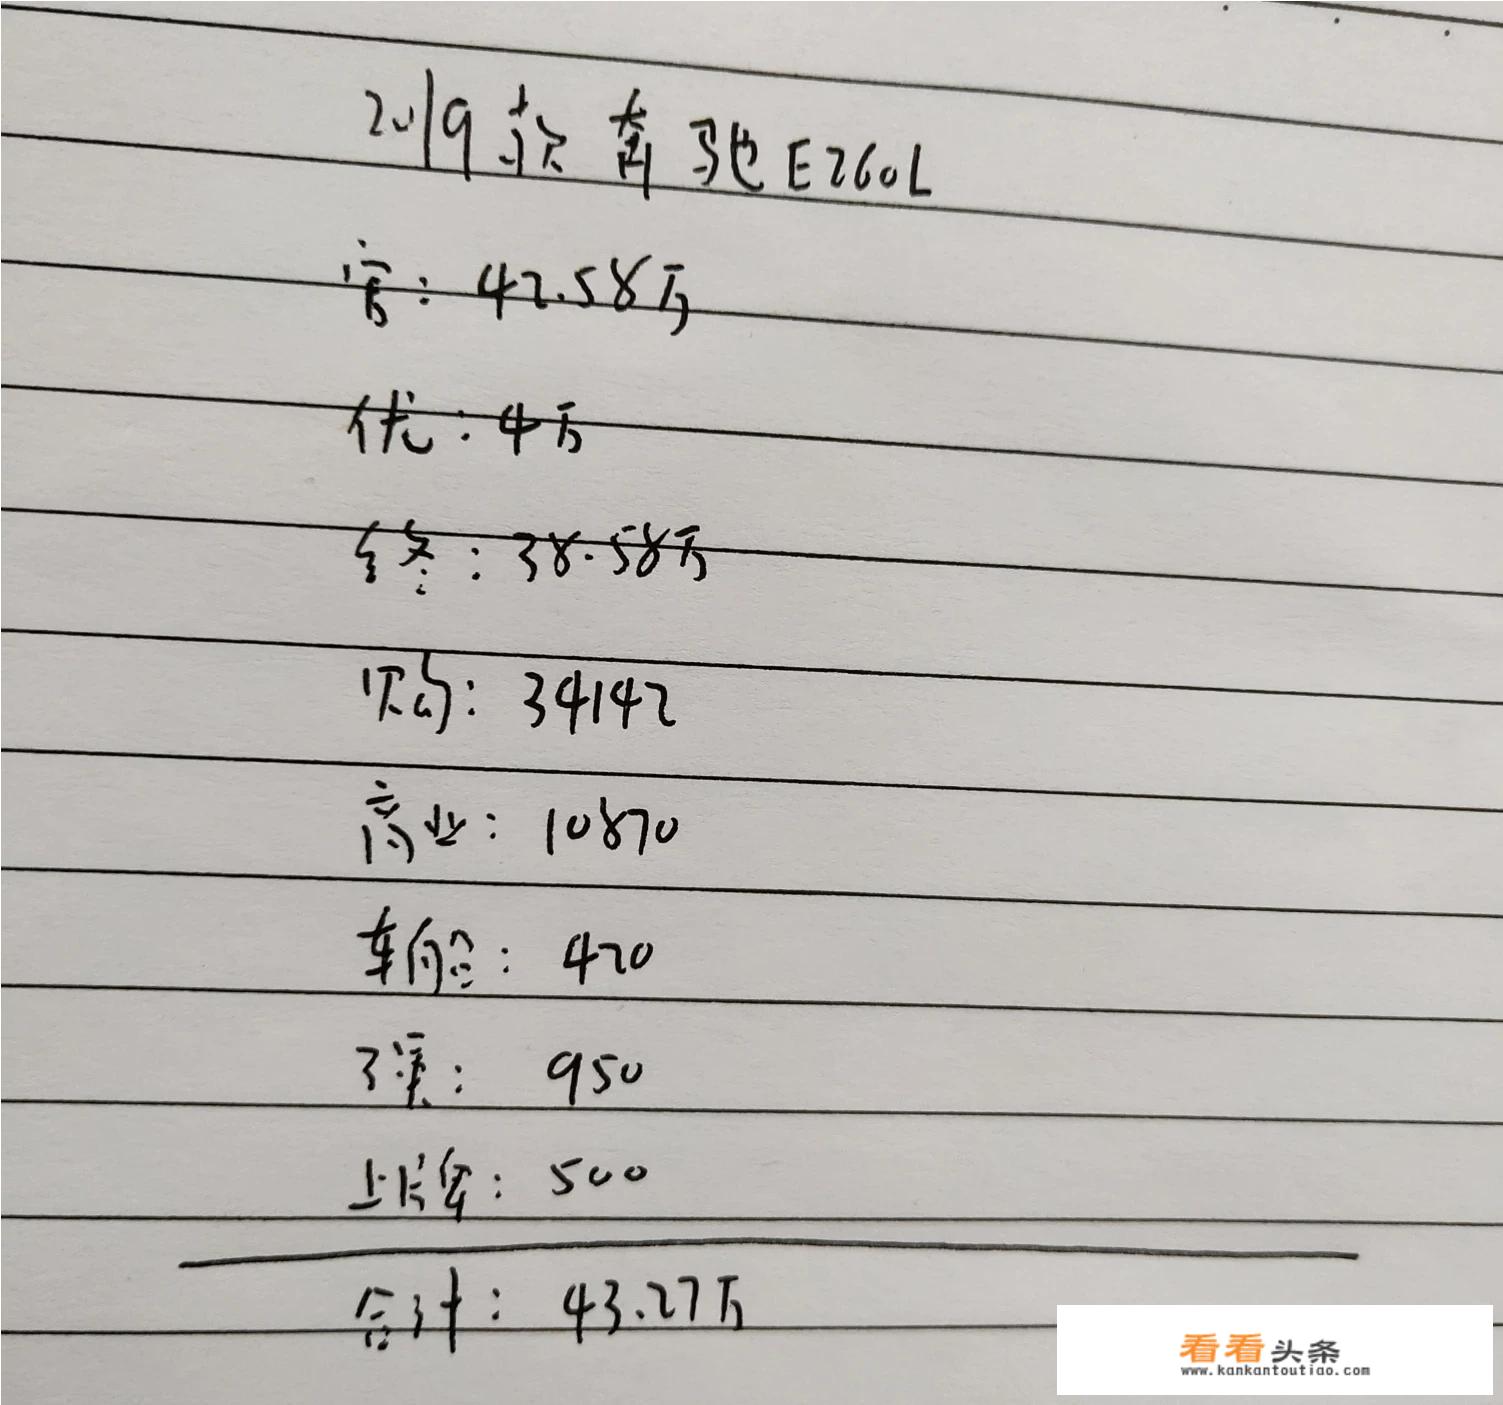 2019款奔驰E260L
官：42.58万
优：4万
终：38.58万
购：34142
商业：10870
车船：420
3湠：950
上牌：500
合计：43.27万
看看头条
www.kankantoutiao.com